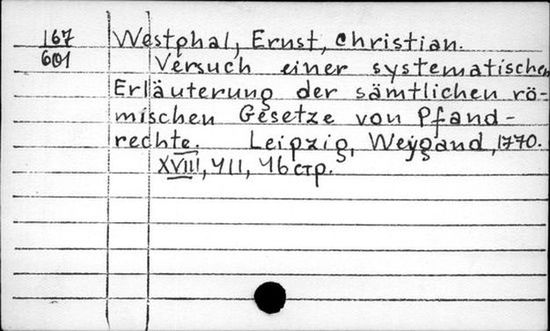 167 Westphal, Ernst, Christian.
601 Versuch einer systematischen
Erläuterung der sämtlichen rö-
mischen Gesetze von Pfand-
rechte. Leipzig, Weygand, 1770.
XVIII, 411, 46 стр.